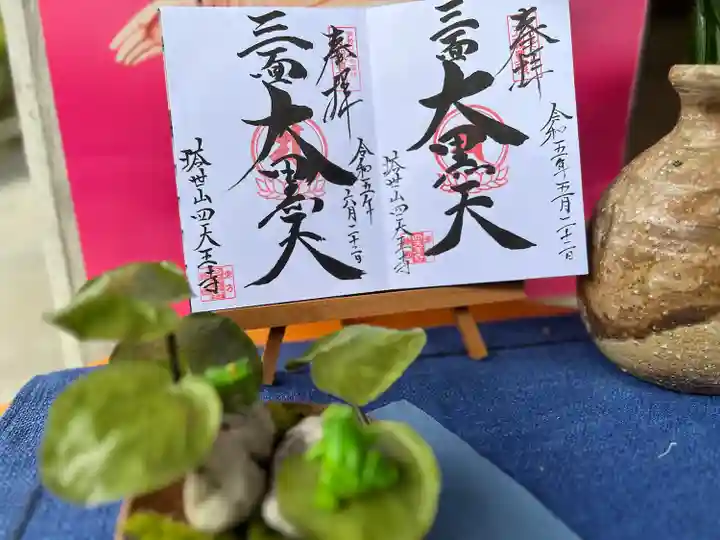 奉拝
三面大黒天
令和五年五月二十二日
塔世山四天王寺
奉拝
三面大黒天
令和五年六月二十二日
塔世山四天王寺